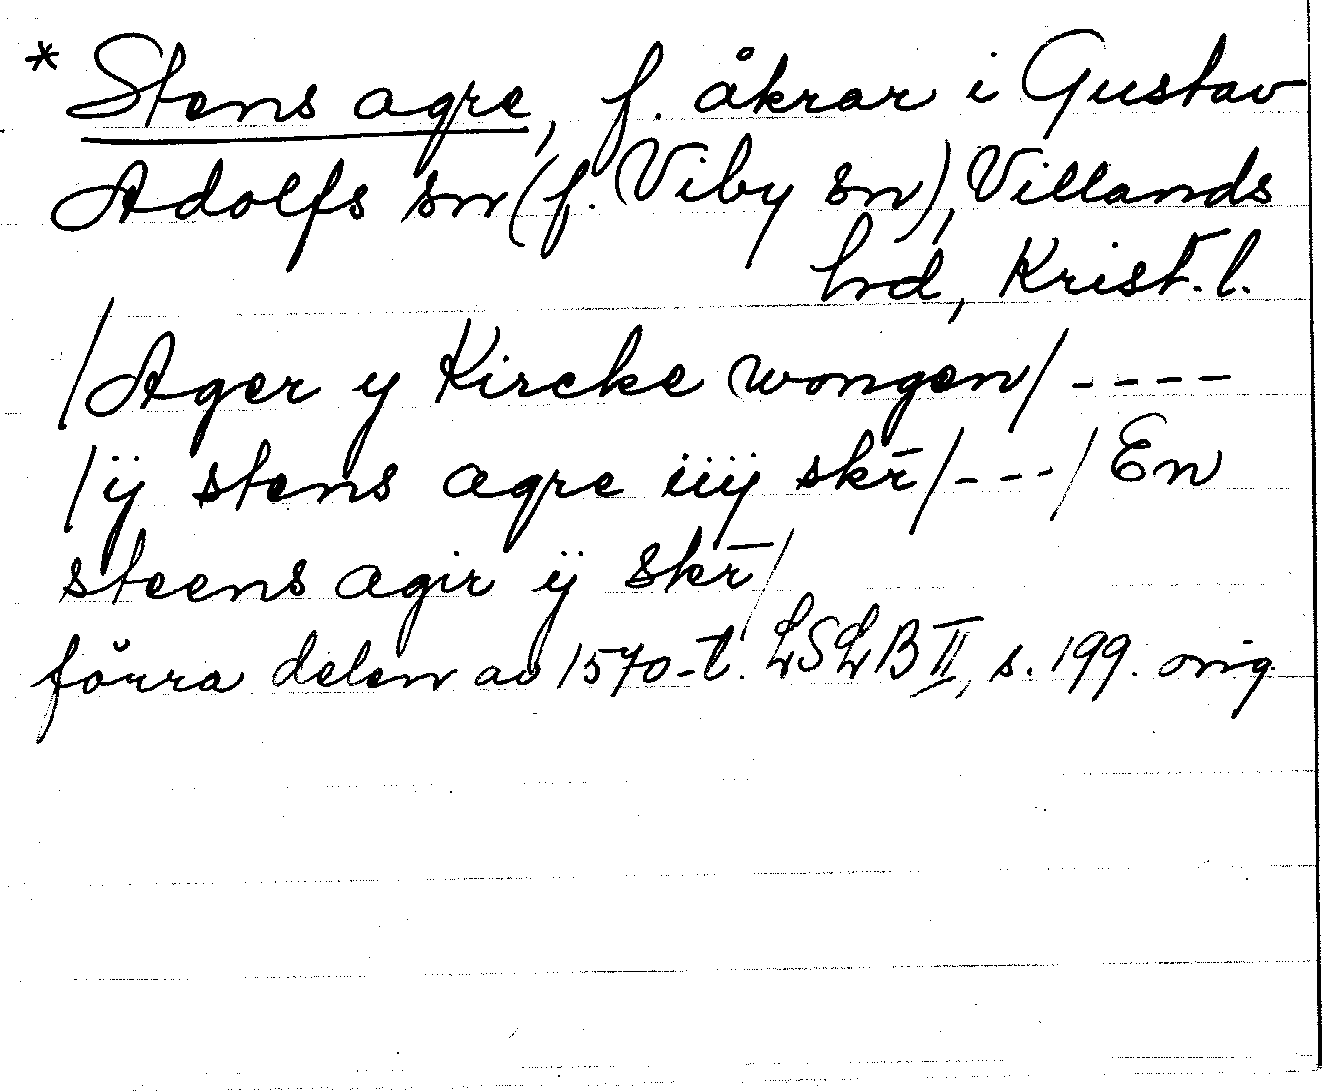 * Stens agre, f. åkrar i Gustav
Adolfs sn (f. Viby sn), Villands
hd, Krist. l.
/Ager y Kircke wongen/ ----
/ÿ stens agre iiÿ skr̄/---/ En
steens agir ÿ skr̄/
förra delen av 1570-t. LSLB II, s. 199. orig